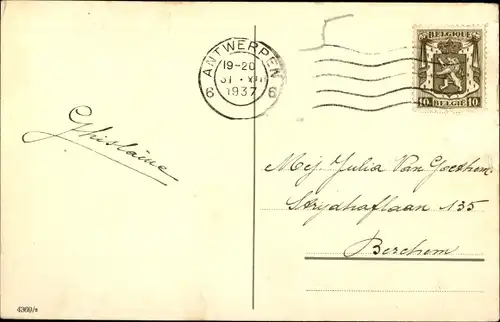 BELGIQUE
10 BELGIË 10
ANTWERPEN
19-20
31 · XII
1937
6 6
Ghislaine
Mej Julia Van Goethem
Strijdhoflaan 135
Berchem